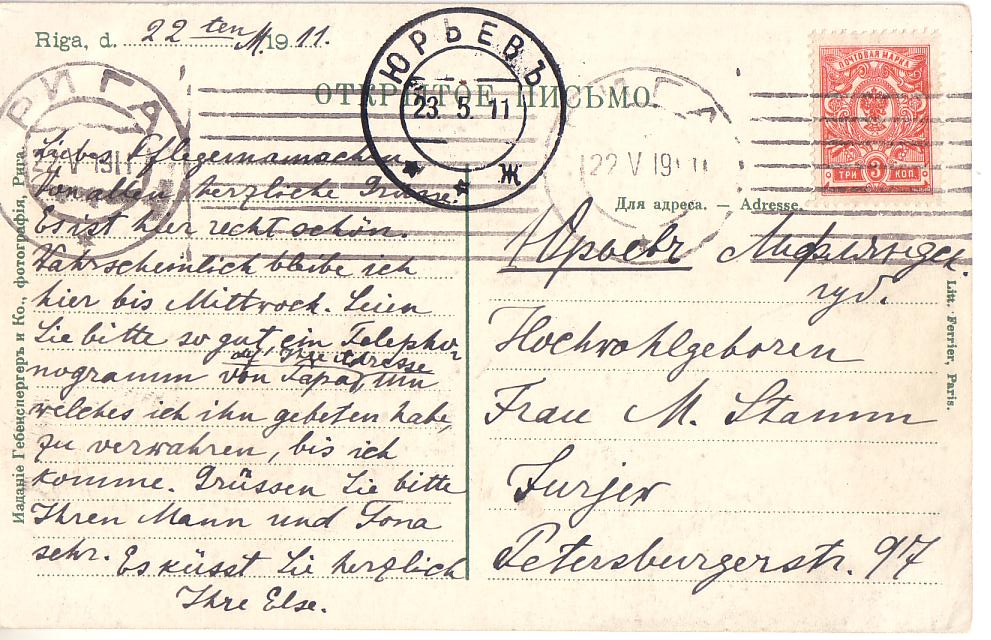 Riga, d. 22 ten M 1911.
ОТКРЫТОЕ ПИСЬМО.
ЮРЬЕВЪ
23. 5. 11
Ж
РИГА
V 1911
22 V 1911
ПОЧТОВАЯ МАРКА
ТРИ 3 КОП.
Для адреса. — Adresse.
Liebes Pflegemamachen
Von allen herzliche Grüsse.
Es ist hier recht schön.
Wahrscheinlich bleibe ich
hier bis Mittwoch. Seien
Sie bitte so gut, ein Telepho-
nogramm von Papa, auf Ihre Adresse um
welches ich ihn gebeten habe,
zu verwahren, bis ich
komme. Grüssen Sie bitte
Ihren Mann und Tona
sehr. Es küsst Sie herzlich
Ihre Else.
Юрьевъ Лифляндск.
губ.
Hochwohlgeboren
Frau M. Stamm
Jurjew
Petersburgerstr. 97
Изданіе Гебенспергеръ и Ко., фотографія, Рига.
Litt. Ferrier, Paris.